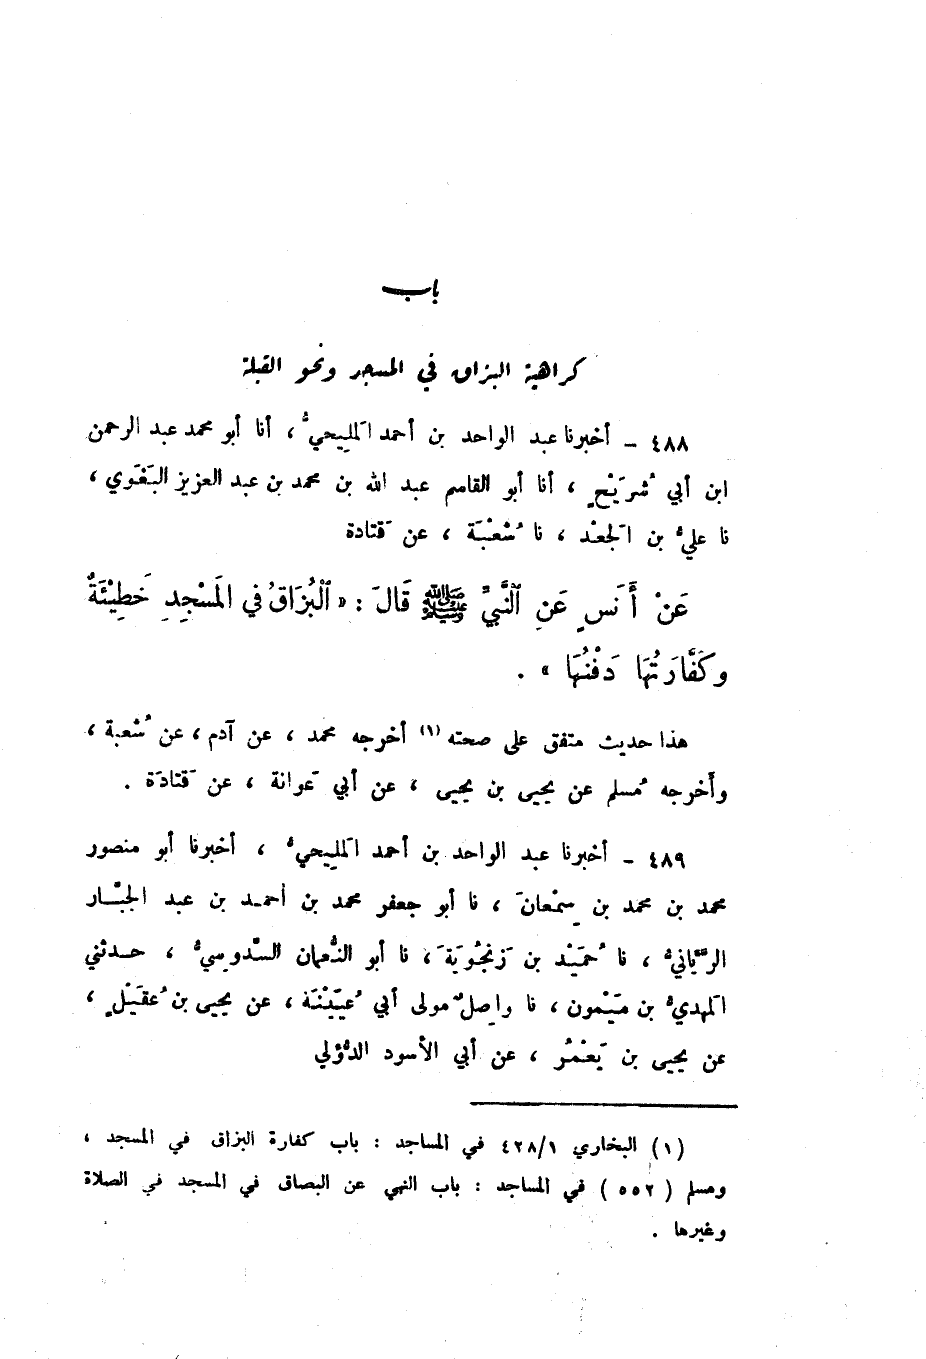 باب
كراهية البزاق في المسجد ونحو القبلة
٤٨٨ – أخبرنا عبد الواحد بن أحمد المَلِيحيُّ ، أنا أبو محمد عبد الرحمن
ابن أبي شُرَيْحٍ ، أنا أبو القاسم عبد الله بن محمد بن عبد العزيز البَغَوي ،
نا عليُّ بن الجَعْد ، نا شُعْبَة ، عن قَتادة
عَنْ أَنَسٍ عَنِ ٱلنَّبِيِّ ﷺ قَالَ : « ٱلْبُزَاقُ في المَسْجِدِ خَطِيْئَةٌ
وكَفَّارَتُهَا دَفْنُهَا » .
هذا حديث متفق على صحته (١) أخرجه محمد ، عن آدم ، عن شُعبة ،
وأخرجه مُسلم عن يحيى بن يحيى ، عن أبي عَوانة ، عن قَتادَة .
٤٨٩ – أخبرنا عبد الواحد بن أحمد المَلِيحيُّ ، أخبرنا أبو منصور
محمد بن محمد بن سِمْعانَ ، نا أبو جعفر محمد بن أحمد بن عبد الجبَّار
الرَّيّانيُّ ، نا حُمَيْد بن زَنْجُويَةَ ، نا أبو النُّعمان السَّدوسيُّ ، حدثني
المَهديُّ بن مَيْمون ، نا واصِلٌ مولى أبي عُيَيْنَة ، عن يحيى بن عُقَيْلٍ ،
عن يحيى بن يَعْمُر ، عن أبي الأسود الدُّؤلي
(١) البخاري ٤٢٨/١ في المساجد : باب كفارة البزاق في المسجد ،
ومسلم ( ٥٥٢ ) في المساجد : باب النهي عن البصاق في المسجد في الصلاة
وغيرها .